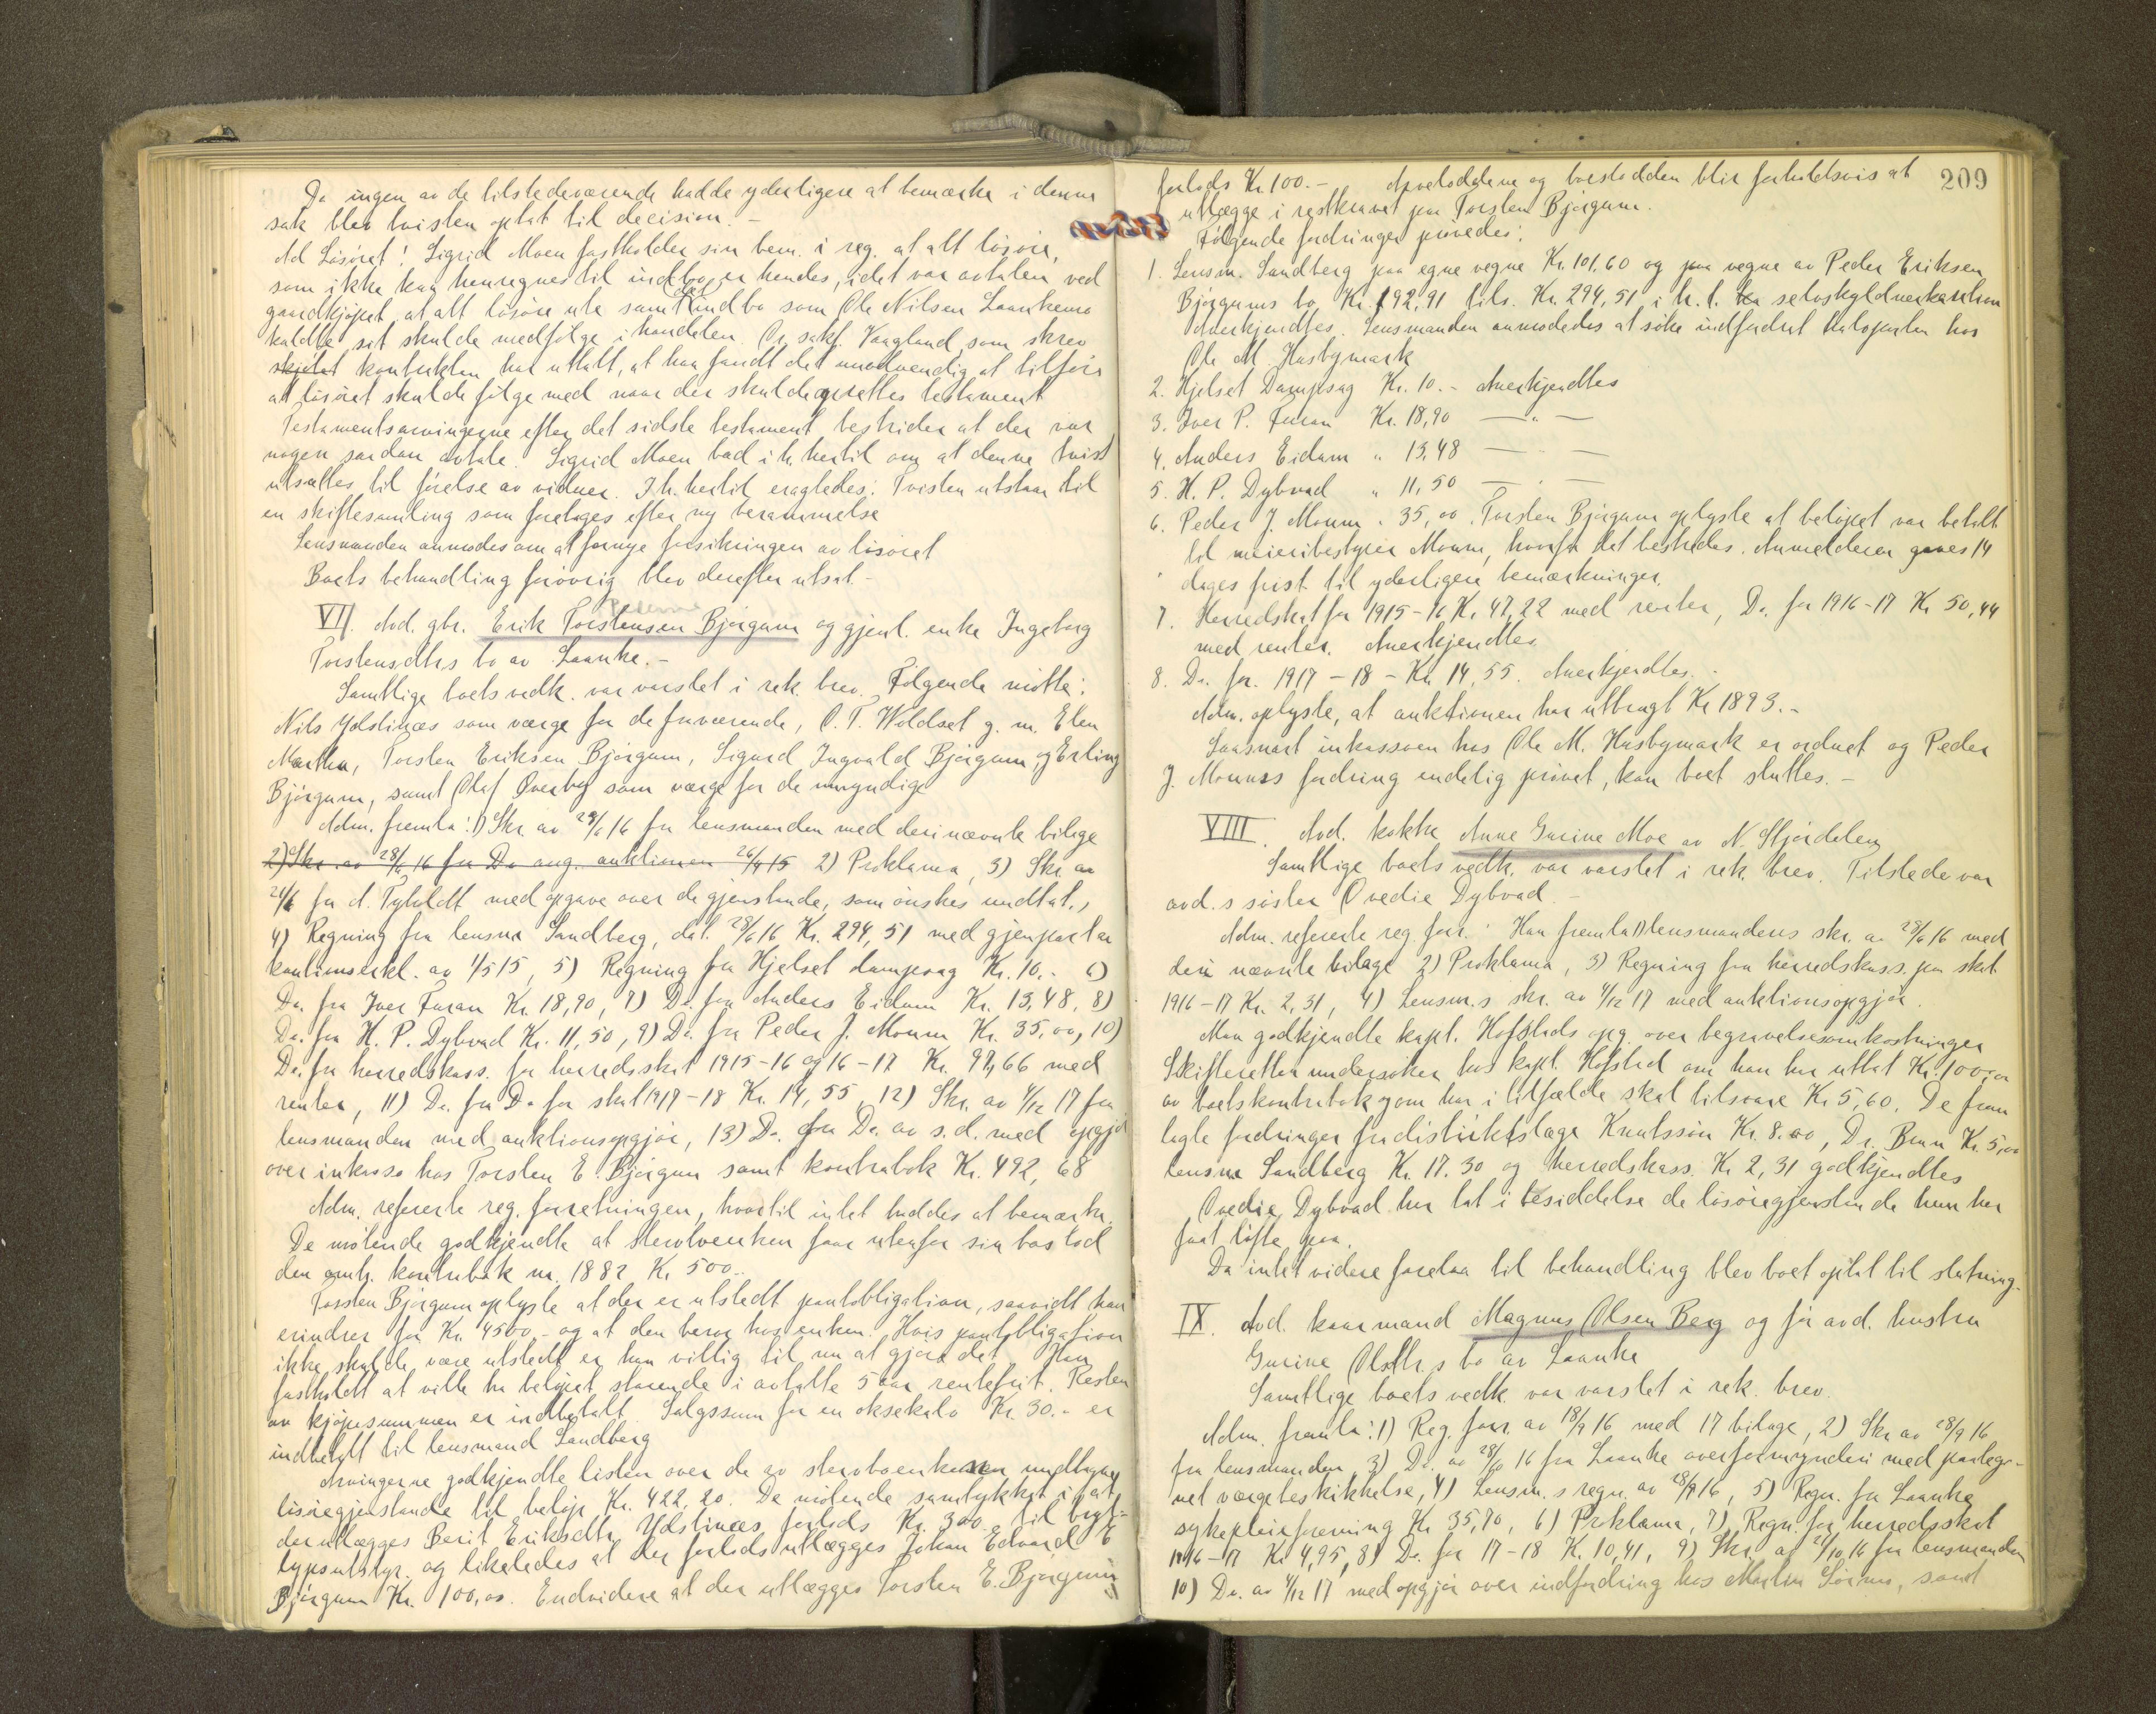 Da ingen av de tilstedeværende hadde yderligere at bemærke i denne
sak blev tvisten optat til decision. -
Ad Lösöret! Sigrid Moen fastholder sin bem. i reg. at alt lösöre,
som ikke kan henregnes til indbo, er hendes, idet var avtalen ved
gaardkjöpet, at alt lösöre ute samt det indbo som Ole Nilsen Laanke
kaldte sit skulde medfölge i handelen. Og sakf. Vaagland, som skrev
skjötet kontrakten har uttalt, at han fandt det unödvendig at tilföie
at lösöret skulde fölge med naar der skulde oprettes testament
Testamentsarvingerne efter det sidste testament bestrider at der var
nogen saadan avtale. Sigrid Moen bad i h. hertil om at denne tvist
utsattes til förelse av vidner. I h. hertil eragtedes: Tvisten utstaar til
en skiftesamling som foretages efter ny berammelse
Lensmanden anmodes om at fornye forsikringen av lösöret
Boets behandling forövrig blev derefter utsat. -
VII. Avd. gbr. Erik Torstensen Bjørgum og gjenl. enke Ingeborg
Torstensdtrs bo av Laanke. -
Samtlige boets vedk. var varslet i rek. brev. Fölgende mötte:
Nils Ydstines som værge for de fraværende, O. T. Woldset g. m. Elen
Martha, Torsten Eriksen Bjørgum, Sigurd Ingvald Bjørgum, og Erling
Bjørgum, samt Olaf Øverby som værge for de umyndige
Adm. fremla: 1) Skr. av 29/6 16 fra lensmanden med deri nævnte bilage
2) Skr. av 28/6 16 fra Do ang. auktionen 26/4 15 2) Proklama, 3) Skr. av
24/6 fra A. Tyholdt med opgave over de gjenstande, som önskes undtat,
4) Regning fra lensm. Sandberg, dat. 28/6 16 Kr. 294,51 med gjenpart av
kautionserkl. av 1/5 15, 5) Regning fra Hjelset dampsag Kr. 10.- 6)
Do. fra Iver Furan Kr. 18,90, 7) Do. fra Anders Eidum Kr. 13,48, 8)
Do. fra H. P. Dybvad Kr. 11,50, 9) Do. fra Peder J. Moum Kr. 35,00, 10)
Do. fra herredskass. for herredsskat 1915-16 og 16-17 Kr. 97,66 med
renter, 11) Do. fra Do for skat 1917-18 Kr. 14,55, 12) Skr. av 4/12 17 fra
lensmanden med auktionsopgjör, 13) Do. fra Do. av s. d. med opgjör
over inkasso hos Torsten E. Bjørgum samt kontrabok Kr. 492,68
Adm. refererte reg. forretningen, hvortil intet haddes at bemærke.
De mötende godkjendte at sterbvenken faar utenfor sin boslod
den omh. kontrabok nr. 1882 Kr 500.-
Torsten Bjørgum oplyste at der er utstedt pantobligation, saavidt han
erindrer for Kr. 4500.- og at den beror hos enken. Hvis pantobligation
ikke skulde være utstedt er han villig til nu at gjöre det. Han
fastholdt at ville ha belöpet staaende i avtalte 5 aar rentefrit. Resten
av kjöpesummen er indbetalt. Salgssum for en oksekalv Kr. 30.- er
indbetalt til lensmand Sandberg
Arvingerne godkjendte listen over de av sterbboenken undtagne
lösöregjenstande til belöp Kr. 422,20. De mötende samtykket i at
der utlægges Berit Eriksdtr. Ydstines forlods Kr. 300.- til bryl-
lupsutstyr. og likeledes at der forlods utlægges Johan Edvard E
Bjørgum Kr. 100,00. Endvidere at der utlægges Torsten E. Bjørgum
209
forlods Kr 100.- Arvelodderne og boeslodden blir forholdsvis at
utlægge i restkravet paa Torsten Bjørgum.
Fölgende fordringer prövedes:
1. Lensm. Sandberg paa egne vegne Kr. 101.60 og paa vegne av Peder Eriksen
Bjørgums bo Kr. 192,91 tils. Kr. 294,51 i h. t. selvskyldnerkaution
Anerkjendtes. Lensmanden anmodedes at söke indfordret halvparten hos
Ole M. Husbymark
2. Hjelset Dampsag Kr. 10.- Anerkjendtes
3. Iver P. Furan Kr. 18,90 — " —
4. Anders Eidum " 13,48 — " —
5. H. P. Dybvad " 11,50 — " —
6. Peder J. Moum " 35,00. Torsten Bjørgum oplyste at belöpet var betalt
til meieribestyrer Moum, hvorfor det bestrides. Anmelderen gaves 14
dages frist til yderligere bemærkninger.
7. Herredskat for 1915-16 Kr. 47,22 med renter, Do. for 1916-17 Kr 50,44
med renter. Anerkjendtes.
8. Do. for 1917-18 - Kr. 14,55. Anerkjendtes. -
Adm. oplyste, at auktionen har utbragt Kr 1893.-
Saasnart inkassoen hos Ole M. Husbymark er ordnet og Peder
J. Moums fordring endelig prövet, kan boet sluttes. -
VIII. Avd. kokke Anne Gurine Moe av N. Stjördalen
Samtlige boets vedk. var varslet i rek. brev. Tilstede var
avd.s söster Ovedie Dybvad. -
Adm. refererte reg. forr. Han fremla 1) lensmandens skr. av 28/6 16 med
deri nævnte bilage 2) Proklama, 3) Regning fra herredskass. paa skat
1916-17 Kr. 2,31, 4) Lensm.s skr. av 4/12 17 med auktionsopgjör.
Man godkjendte kapt. Hofstads opg. over begravelsesomkostninger
Skifteretten undersöker hos kapt. Hofstad om han har uttat Kr. 100,00
av boets kontrabok og om han i tilfælde skal tilsvare Kr 5,60. De frem
lagte fordringer fra distriktslæge Knutssön Kr. 8.00, Dr. Bruun Kr. 5,00
lensm. Sandberg Kr. 17.30 og herredskass. Kr 2,31 godkjendtes
Ovedie Dybvad har tat i besiddelse de lösöregjenstande hun har
faat löfte paa.
Da intet videre forelaa til behandling blev boet optat til slutning.
IX. Avd. kaarmand Magnus Olsen Berg og för avd. hustru
Gurine Olsdtr.s bo av Laanke
Samtlige boets vedk. var varslet i rek. brev.
Adm. fremla: 1) Reg. forr. av 18/9 16 med 17 bilage, 2) Skr. av 28/9 16
fra lensmanden 3) Do. av 28/10 16 fra Laanke overformynderi med paateg-
net værgebeskikkelse, 4) Lensm.s regn. av 28/9 16, 5) Regn. fra Laanke
sykepleieforening Kr 35,70, 6) Proklama, 7) Regn. for herredsskat
1916-17 Kr 4,95, 8) Do. for 17-18 Kr. 10,41, 9) Skr. af 24/10 16 fra lensmanden
10) Do. av 4/12 17 med opgjör over indfordring hos Martin , samt